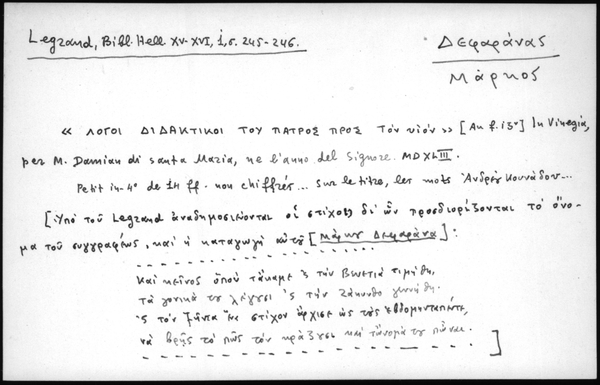 Legrand, Bibl. Hell. XV-XVI, i, σ. 245-246.
Δεφαράνας
Μάρκος
« ΛΟΓΟΙ ΔΙΔΑΚΤΙΚΟΙ ΤΟΥ ΠΑΤΡΟΣ ΠΡΟΣ Τὸν υἱόν » [Au f. 13v] In Vinegia,
per M. Damian di santa Maria, ne l'anno del Signore. MDXLIII.
Petit in-4° de 14 ff. non chiffrés... sur le titre, les mots Ἀνδρέȣ Κουνάδου...
[Ὑπὸ τοῦ Legrand ἀναδημοσιεύονται οἱ στίχοι δι' ὧν προσδιορίζονται τὸ ὄνο-
μα τοῦ συγγραφέως, καὶ ἡ καταγωγὴ αὐτοῦ [Μάρκου Δεφαράνα] :
Καὶ κεῖνος ὁποὺ τἄκαμε 'ς τὴν Βενετιὰ τιμήθη,
τὰ γονικά τȣ λέγȣσι 'ς τὴν Ζάκυνθο γεννήθη.
'ς τὸν στίχον ἄρχισε ὡς τοὺς ἑβδομηνταπέντε,
νὰ βρῇς τὸ πῶς τὸν κράζȣσι καὶ τὄνομά τȣ